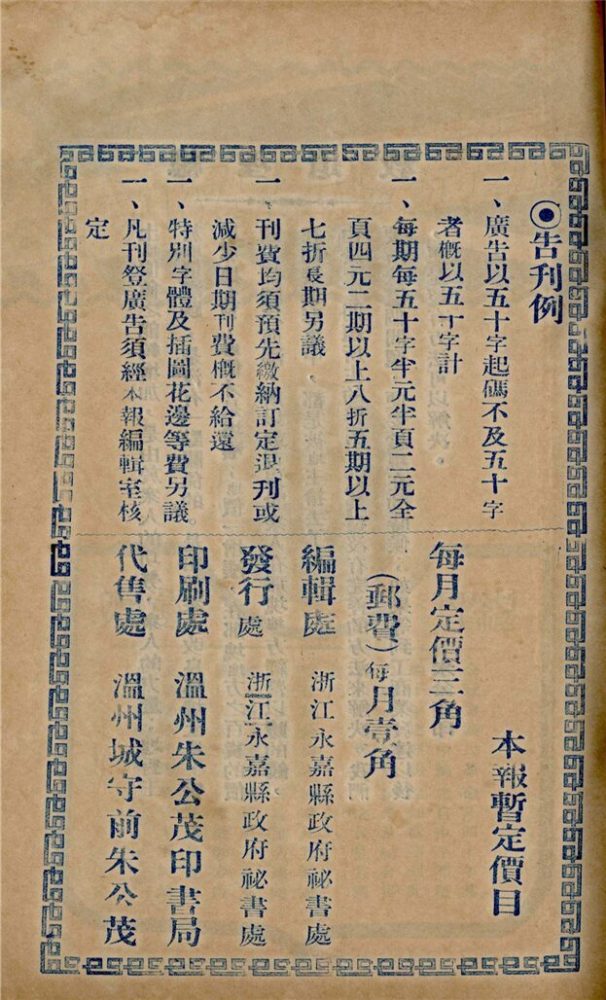 ◉告刊例
一、廣告以五十字起碼不及五十字
者概以五十字計
一、每期每五十字半元半頁二元全
頁四元二期以上八折五期以上
七折長期另議
一、刊費均須預先繳納訂定退刊或
減少日期刊費概不給還
一、特別字體及插圖花邊等費另議
一、凡刊登廣告須經本報編輯室核
定
本報暫定價目
每月定價三角
（郵費）每月壹角
編輯處 浙江永嘉縣政府祕書處
發行處 浙江永嘉縣政府祕書處
印刷處 溫州朱公茂印書局
代售處 溫州城守前朱公茂